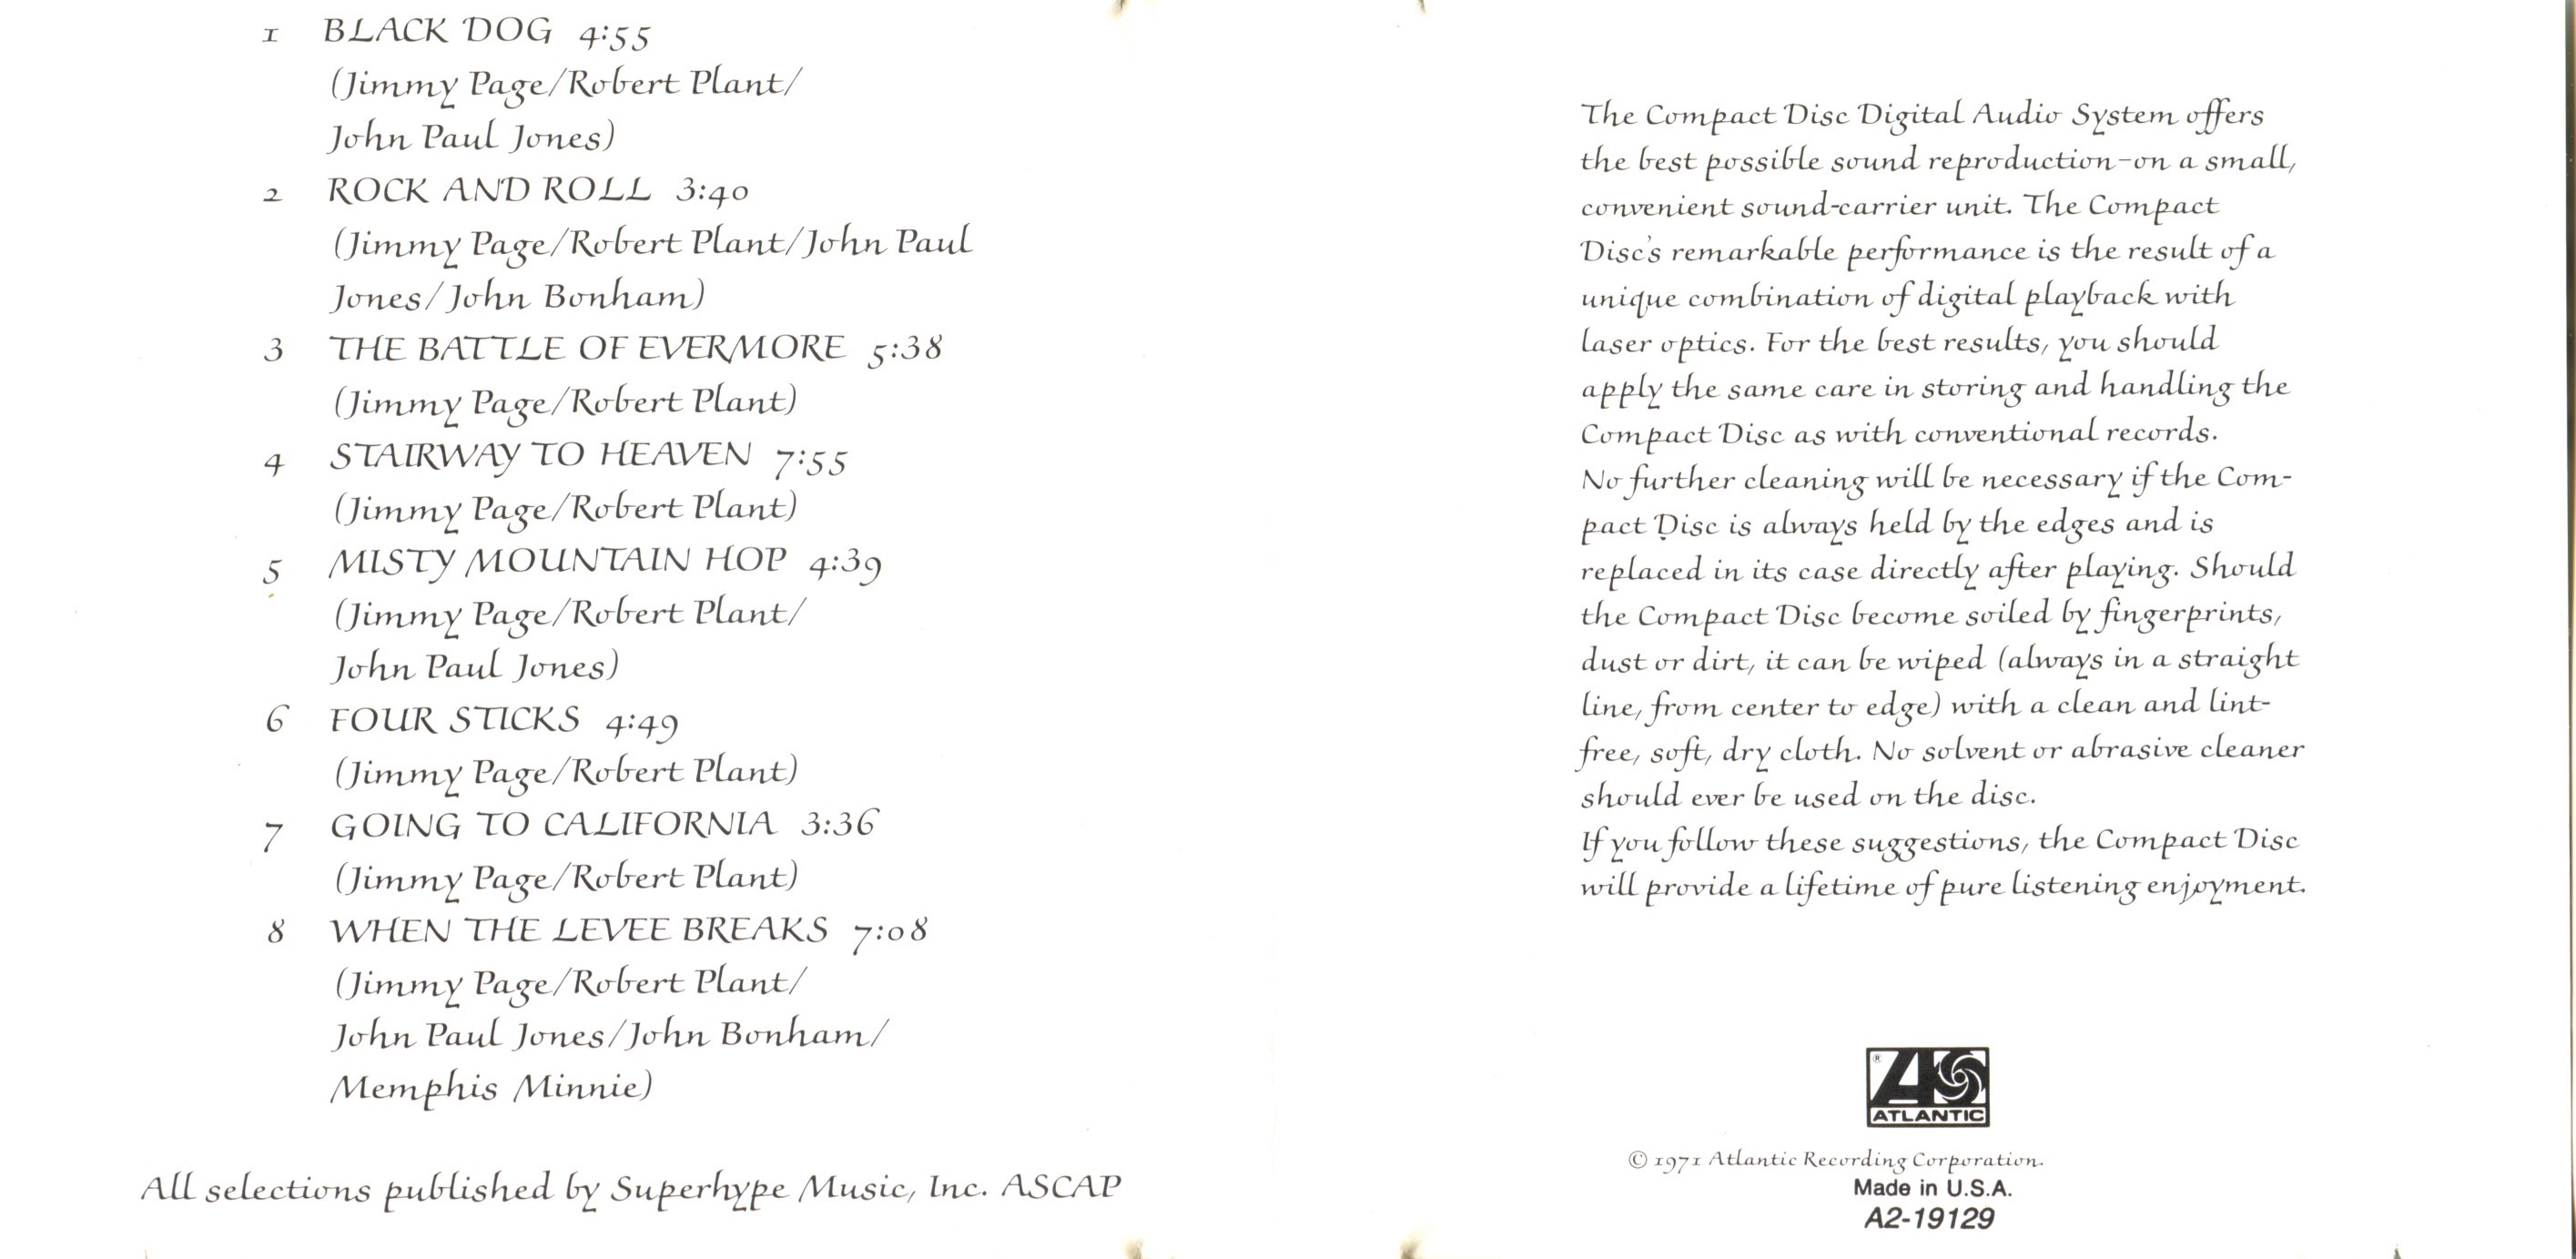 1 BLACK DOG 4:55
(Jimmy Page/Robert Plant/
John Paul Jones)
2 ROCK AND ROLL 3:40
(Jimmy Page/Robert Plant/John Paul
Jones/John Bonham)
3 THE BATTLE OF EVERMORE 5:38
(Jimmy Page/Robert Plant)
4 STAIRWAY TO HEAVEN 7:55
(Jimmy Page/Robert Plant)
5 MISTY MOUNTAIN HOP 4:39
(Jimmy Page/Robert Plant/
John Paul Jones)
6 FOUR STICKS 4:49
(Jimmy Page/Robert Plant)
7 GOING TO CALIFORNIA 3:36
(Jimmy Page/Robert Plant)
8 WHEN THE LEVEE BREAKS 7:08
(Jimmy Page/Robert Plant/
John Paul Jones/John Bonham/
Memphis Minnie)
All selections published by Superhype Music, Inc. ASCAP
The Compact Disc Digital Audio System offers
the best possible sound reproduction–on a small,
convenient sound-carrier unit. The Compact
Disc's remarkable performance is the result of a
unique combination of digital playback with
laser optics. For the best results, you should
apply the same care in storing and handling the
Compact Disc as with conventional records.
No further cleaning will be necessary if the Com-
pact Disc is always held by the edges and is
replaced in its case directly after playing. Should
the Compact Disc become soiled by fingerprints,
dust or dirt, it can be wiped (always in a straight
line, from center to edge) with a clean and lint-
free, soft, dry cloth. No solvent or abrasive cleaner
should ever be used on the disc.
If you follow these suggestions, the Compact Disc
will provide a lifetime of pure listening enjoyment.
®
ATLANTIC
© 1971 Atlantic Recording Corporation.
Made in U.S.A.
A2-19129